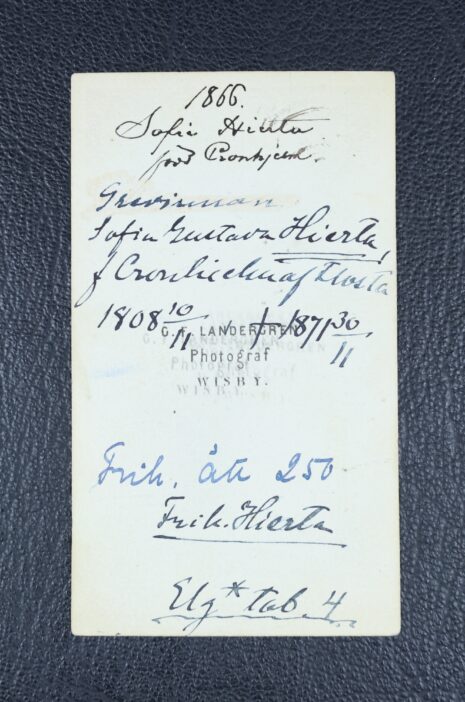 1866.
Sofia Hierta
född Cronhjelm.
Grevinnan
Sofia Gustava Hierta,
f Cronhielm af Flosta
1808 10/11 † 1871 30/11
G. F. LANDERGREN
Photograf
WISBY.
Frih. ätt 250
Frih. Hierta
Elg* tab 4